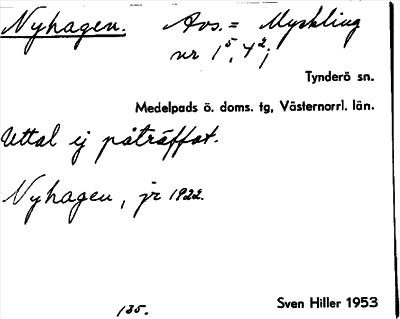 Nyhagen. Avs. = Myckling
nr 1⁵, 4²;
Tynderö sn.
Medelpads ö. doms. tg, Västernorrl. län.
Uttal ej påträffat.
Nyhagen, jr 1922.
135.
Sven Hiller 1953